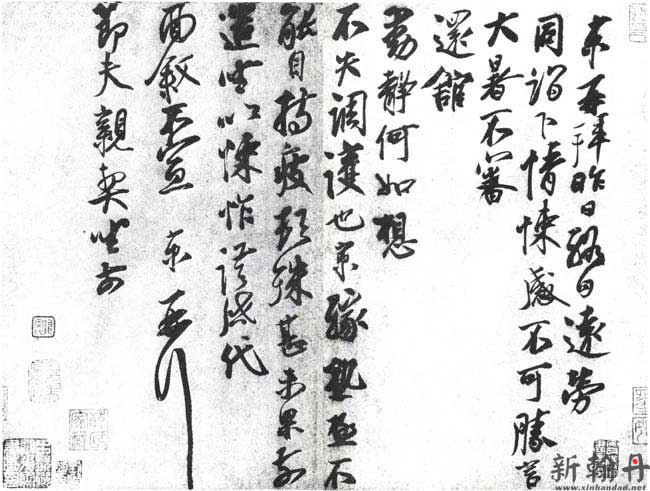 京再拜昨日終日遠勞
同詣下情悚感不可勝言
大暑不審
還舘
動靜何如想
不失調護也京緣熱極不
能自持疲頓殊甚未果前
造坐次悚怍謹啓代
面敘不宣 京 再拜
節夫親契坐前
新翰丹
www.xinhandad.net